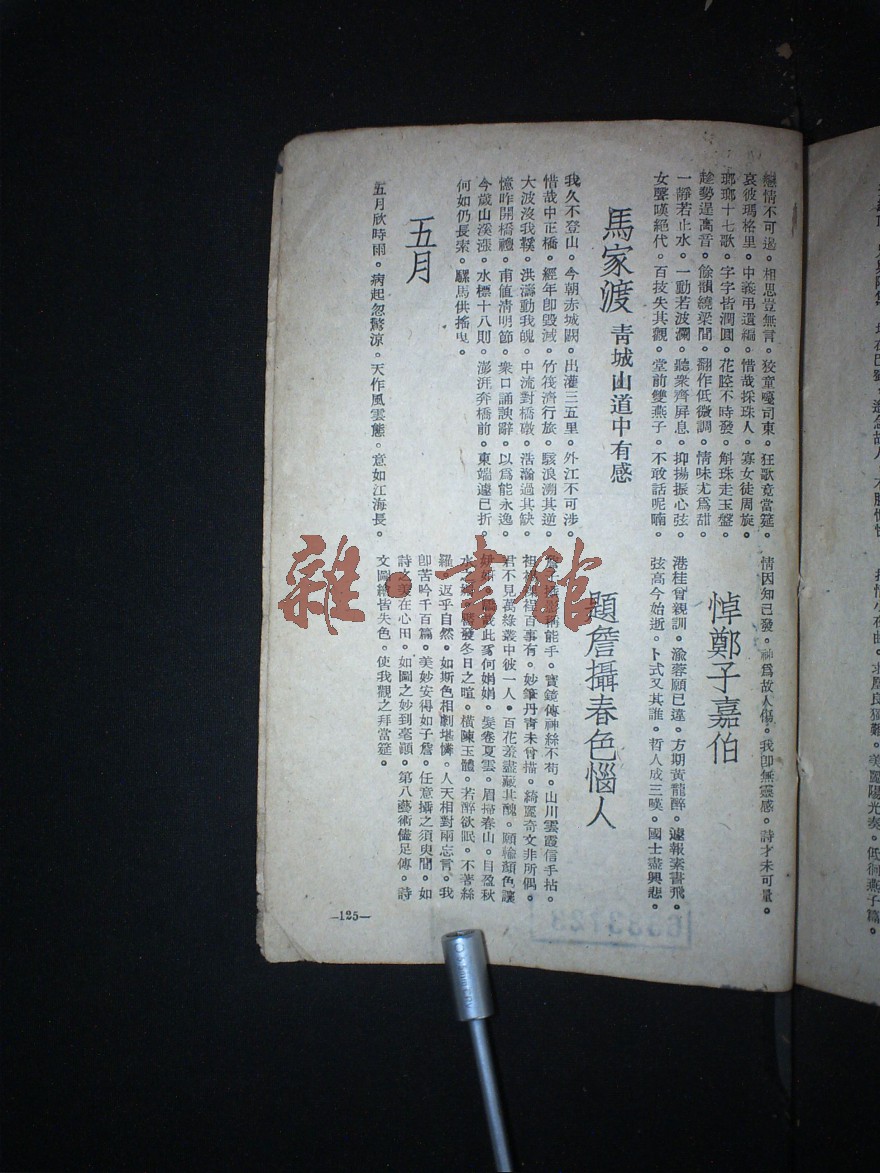 戀情不可遏。相思豈無言。狡童嘎司東。狂歌竟當筵。
哀彼瑪格里。中義弔遺編。惜哉採珠人。寡女徒周旋。
瑯瑯十七歌。字字皆潤圓。花腔不時發。斛珠走玉盤。
趁勢逞高音。餘韻繞梁間。翻作低微調。情味尤爲甜。
一靜若止水。一動若波瀾。聽衆齊屏息。抑揚振心弦。
女聲嘆絕代。百技失其觀。堂前雙燕子。不敢話呢喃。
馬家渡 青城山道中有感
我久不登山。今朝赤城闕。出灌三五里。外江不可涉。
惜哉中正橋。經年卽毁滅。竹筏濟行旅。駭浪溯其逆。
大波沒我韈。洪濤動我魄。中流對橋墩。浩瀚過其缺。
憶昨開橋禮。甫值清明節。衆口誦諛辭。以爲能永逸。
今歲山溪漲。水標十八則。澎湃奔橋前。東端遽已折。
何如仍長索。騾馬供搖曳。
五月
五月欣時雨。病起忽驚涼。天作風雲態。意如江海長。
情因知己發。神爲故人傷。我卽無靈感。詩才未可量。
悼鄭子嘉伯
港桂曾親訓。渝蓉願已違。方期黃龍醉。遽報素書飛。
弦高今始逝。卜式又其誰。哲人成三嘆。國士盡興悲。
題詹攝春色惱人
能手。寶鏡傳神絲不苟。山川雲霞信手拈。
百事有。妙筆丹青未曾描。綺麗奇文非所偶。
君不見萬綠叢中彼一人。百花羞盡羸其醜。願輸顏色讓
此豸何娟娟。髮卷夏雲。眉掃春山。目盈秋
水。發冬日之暄。橫陳玉體。若醉欲眠。不著絲
羅。返乎自然。如斯色相劇堪憐。人天相對兩忘言。我
卽苦吟千百篇。美妙安得如子詹。任意攝之須臾間。如
詩之美在心田。如圖之妙到毫顚。第八藝術儘足傳。詩
文圖繪皆失色。使我觀之拜當筵。
—125—
雜·書館